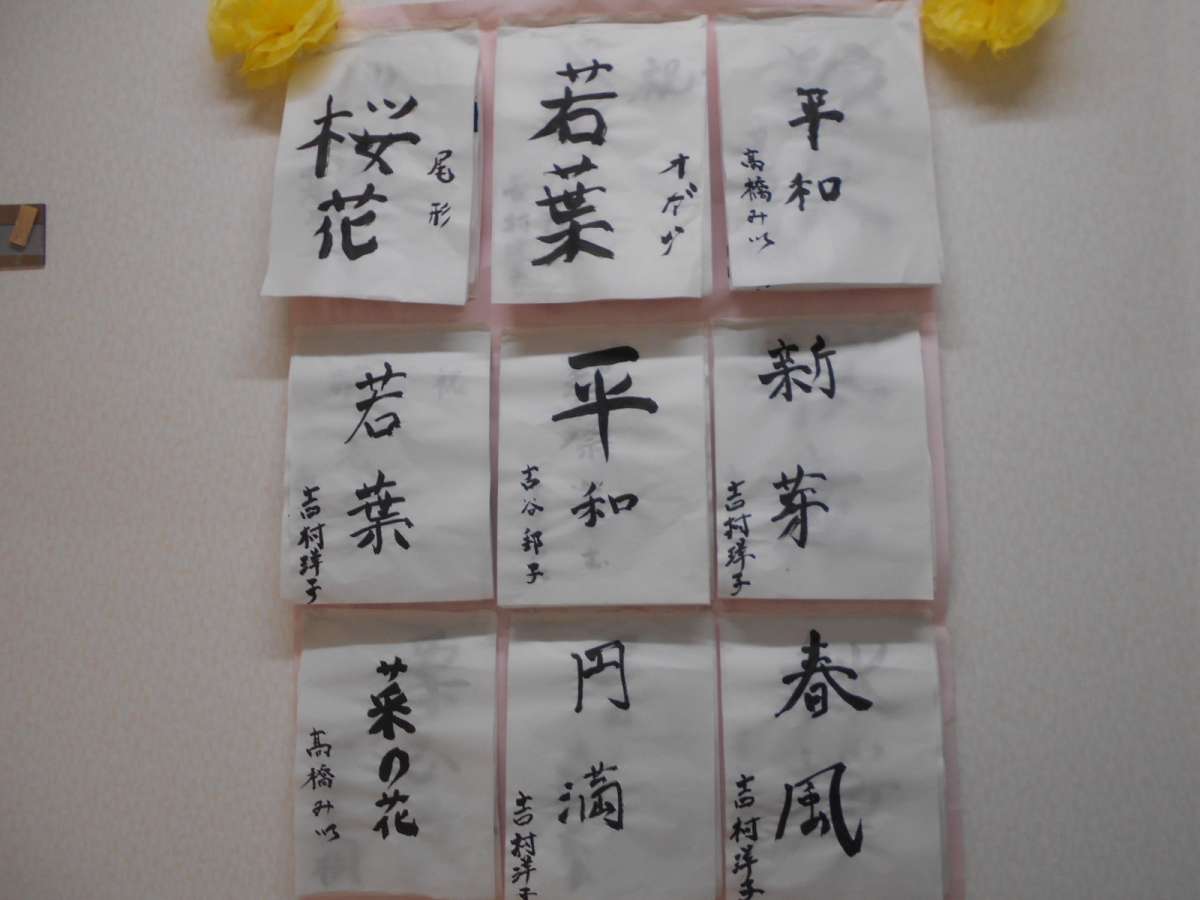 桜花
尾形
若葉
オガタ
平和
高橋み以
若葉
吉村洋子
平和
古谷邦子
新芽
吉村洋子
菜の花
高橋み以
円満
吉村洋子
春風
吉村洋子